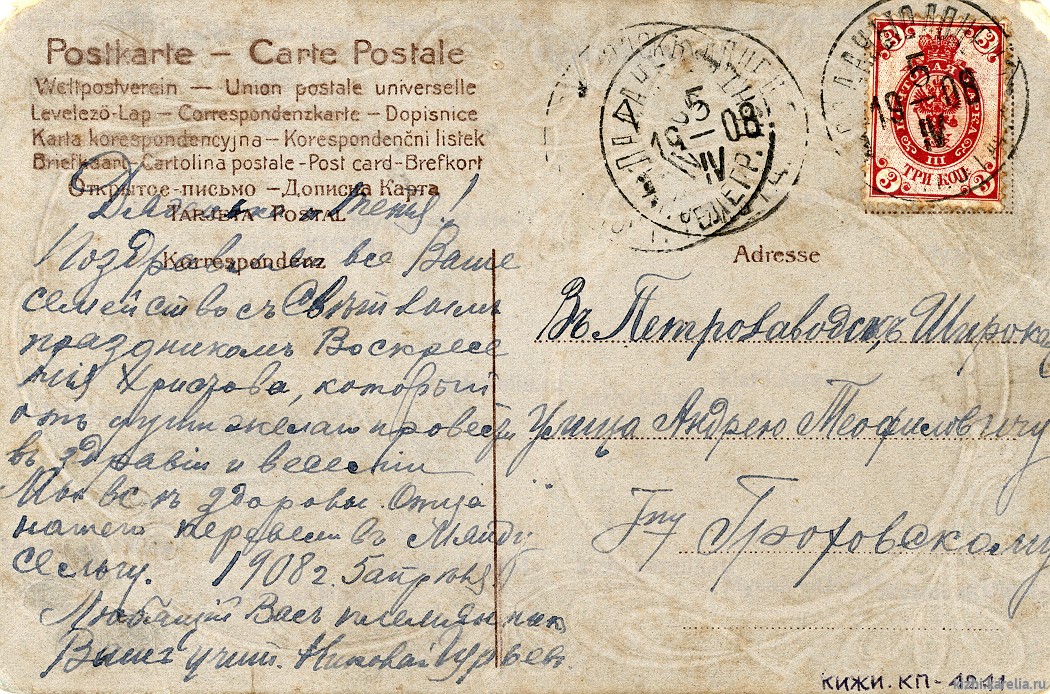 Postkarte – Carte Postale
Weltpostverein — Union postale universelle
Levelező-Lap – Correspondenzkarte – Dopisnice
Karta korespondencyjna – Korespondenční listek
Briefkaart – Cartolina postale - Post card - Brefkort
Открытое письмо – Дописна Карта
TARJETA POSTAL
Korrespondenz
Adresse
и Женя!
Поздравляю все Ваше
семейство съ Свѣтлымъ
праздникомъ Воскресе
нія Христова, который
отъ души желаю провести
въ здравіи и веселіи
Мы всѣ здоровы. Отца
нашего перевели въ Мянду
сельгу. 1908 г. 5 апрѣля
Любящій Васъ племянникъ
учит. Николай
Въ Петрозаводскъ Широкая
улица Андрею Теофиловичу
Гну Гроховскому
3 3
5
19 – 08
IV
5
19 – 08
IV
МАРКА
III
ТРИ КОП.
3 3
КИЖИ. КП - 4241
kizhi.karelia.ru